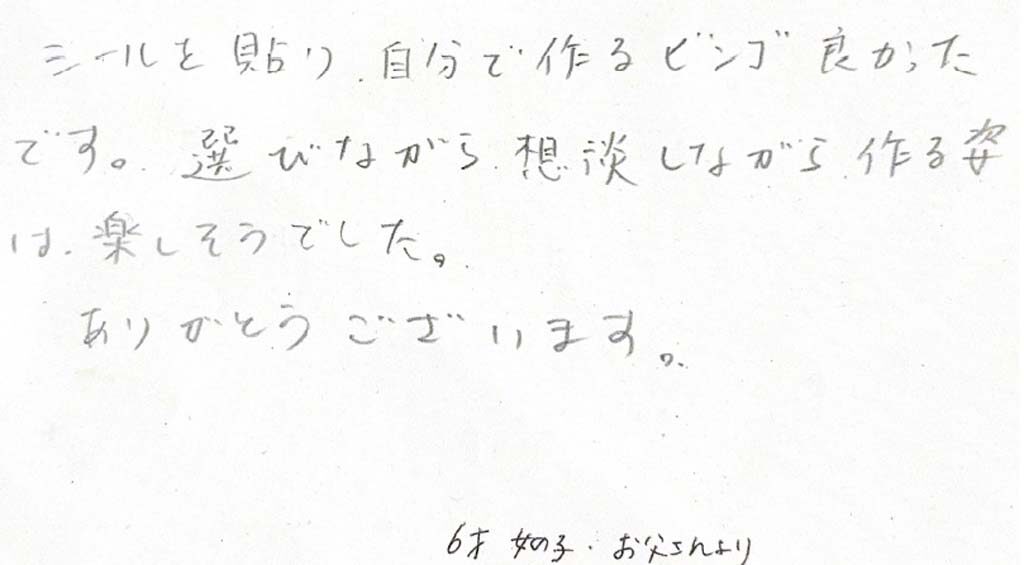 シールを貼り、自分で作るビンゴ良かった
です。選びながら、想談しながら、作る姿
は、楽しそうでした。
ありがとうございます。
6才 女の子・お父さんより